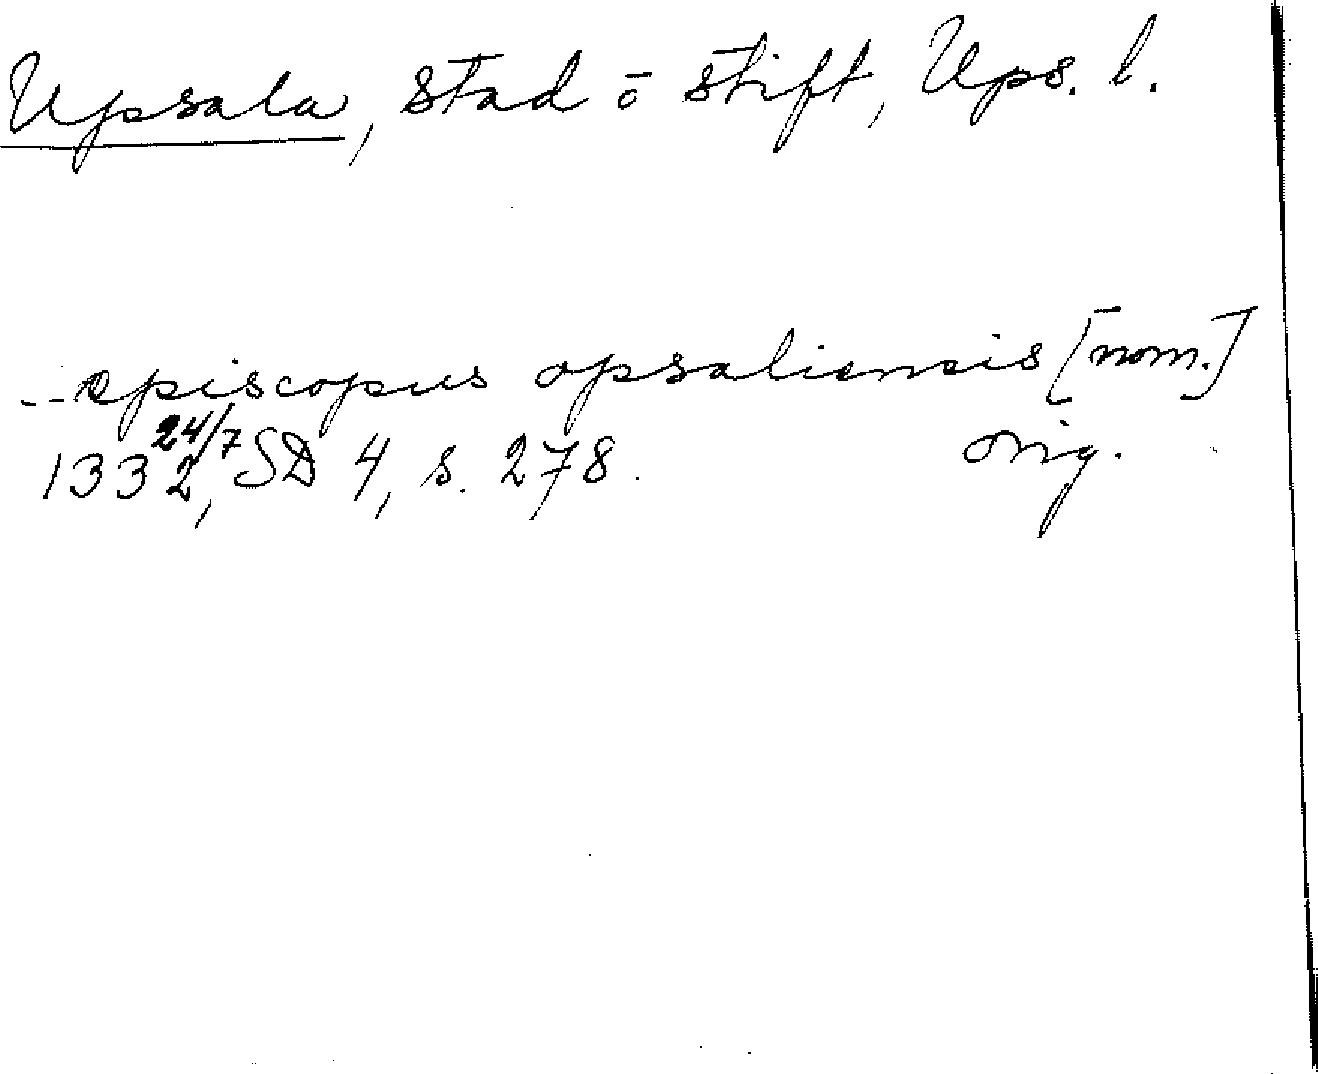 Upsala, stad o stift, Ups. l.
-- episcopus opsaliensis [nom.]
1332 24/7, SD 4, s. 278. orig.